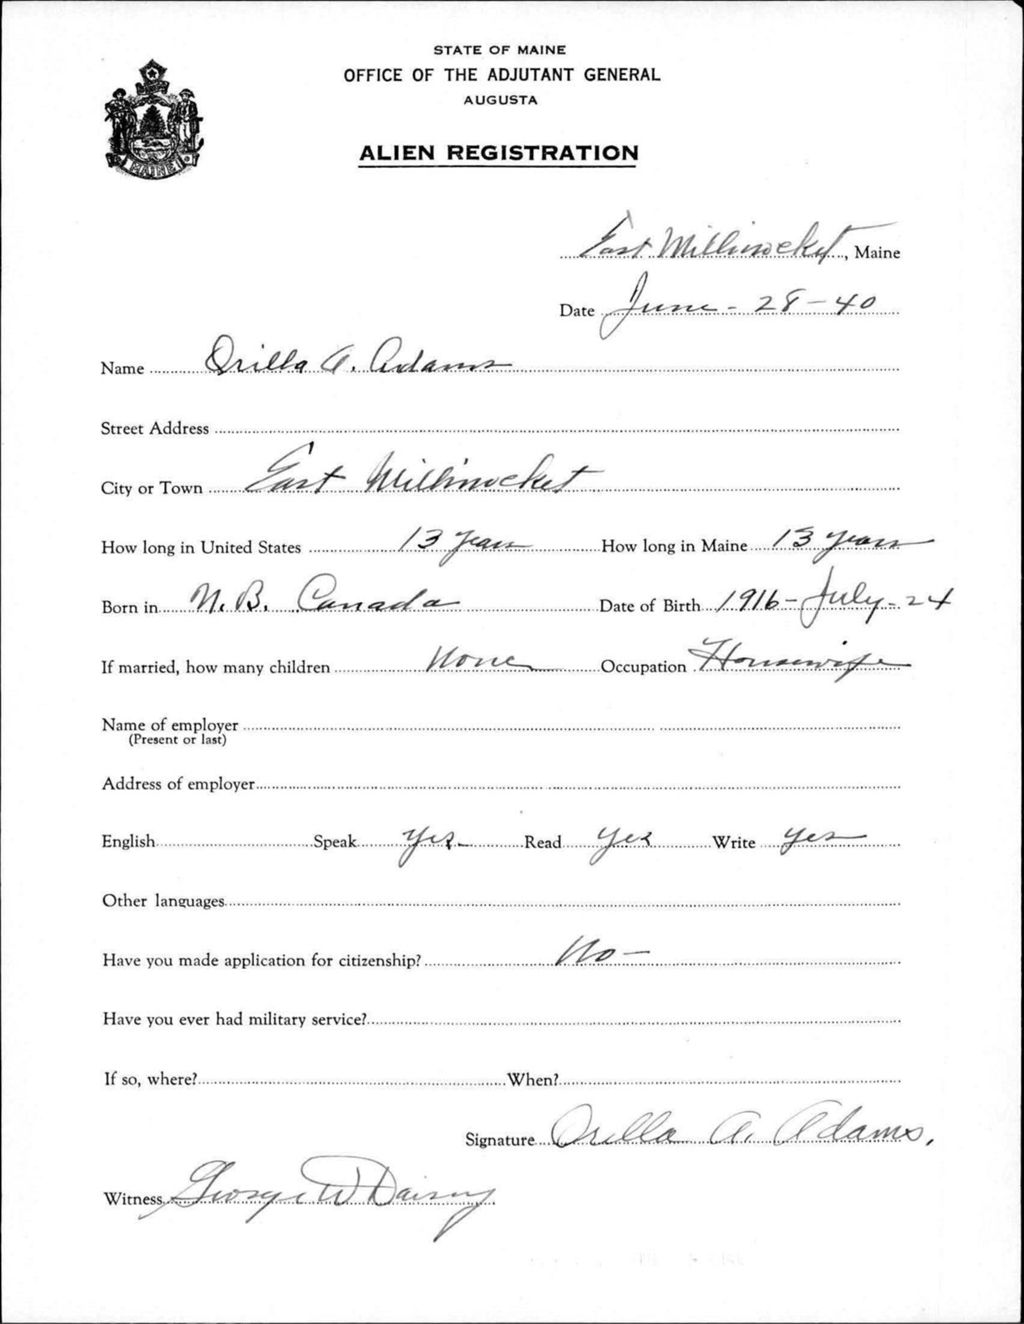 STATE OF MAINE
OFFICE OF THE ADJUTANT GENERAL
AUGUSTA
ALIEN REGISTRATION
MAINE
East Millinocket, Maine
Date June - 28 - 40
Name Orilla A. Adams
Street Address
City or Town East Millinocket
How long in United States 13 years How long in Maine 13 years
Born in N. B. Canada Date of Birth 1916 - July - 24
If married, how many children None Occupation Housewife
Name of employer
(Present or last)
Address of employer
English Speak Yes Read Yes Write Yes
Other languages
Have you made application for citizenship? No -
Have you ever had military service?
If so, where? When?
Signature Orilla A. Adams.
Witness George W Daisey